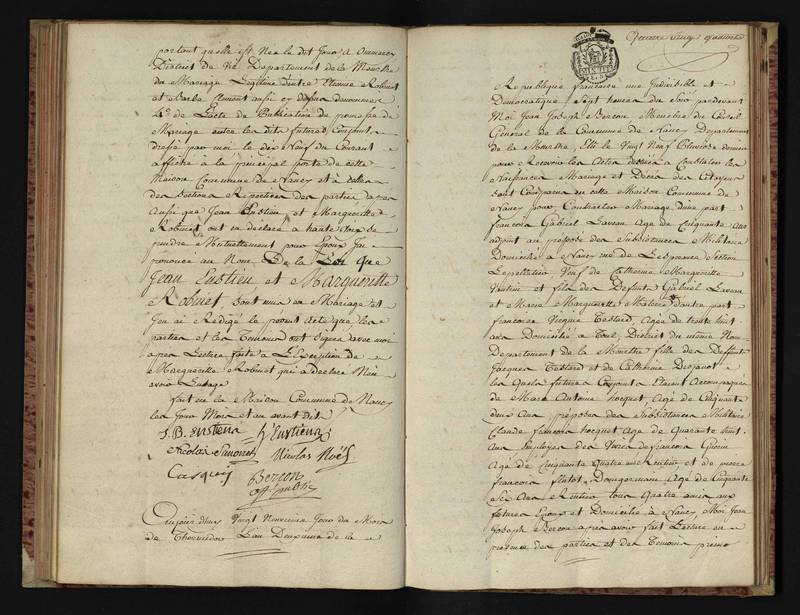 portant quelle est Née le dit Jour a
District de Vic Departement de la Meurthe
du Mariage Légitime d'entre Etienne Robinet
et Barbe aussi cy dessus denommés
4.º de Lacte de Publication de promesse de
Mariage entre les dits futurs Conjoint,
dressé par moi le dix Neuf du Courant
affiché a la principal porte de cette
Maison Commune de Nancy et a celles
des Sections Respectives des parties apres
Aussi que Jean Eustien et Margueritte
Robinet ont eu declaré a haute Voix se
prendre Mutuellement pour Epoux J'ai
prononcé au Nom De la Loi que
Jean Eustien et Margueritte
Robinet sont unis en Mariage et
J'en ai Redigé le présent Acte que les
parties et les Temoins ont signés avec moi
apres Lecture faite a L'Exception de
Margueritte Robinet qui a déclaré N'en
avoir Lusage
fait en la Maison Commune de Nancy
les Jour Mois et an avant dit
J. B. Eustien
Nicolas Nicolas Noël
Casquey Berson
off. public
Aujourdhuy Vingt Neuvieme Jour du Mois
de Thermidor L'an Deuxieme de la
Republique francaise une Indivisible et
Democratique Sept heures du Soir pardevant
Moi Jean Joseph Berson, Membre du Conseil
General de la Commune de Nancy Departement
de la Meurthe Elu le Vingt Neuf Pluviose dernier
pour Recevoir les Actes destinés a Constater les
Naissances Mariage et Décès des Citoyens
Sont Comparus en cette Maison Commune de
Nancy pour Contracter Mariage d'une part
francois Gabriel Laveau Agé de Cinquante ans
adjoint au préposé des Subsistances Militaire
Domicilié a Nancy rue de Lesperance Section
Lepelletier Veuf de Catherine Margueritte
et fils des Défunts Gabriel Laveau
et Marie Margueritte d'autre part
francoise Virginie Testard Agée de trente huit
ans Domiciliée a Toul District du meme Nom
Departement de la Meurthe fille des Défunts
Jacques Testard et de Catherine
les Quels futurs Conjoints Etaient Accompagnés
de Marc Antoine hocquet, Agé de Cinquante
deux ans préposé des Subsistances Militaire
Claude francois hocquet Agé de Quarante huit
Ans Employé des Vivres de francois
Agé de Cinquante Quatre ans Rentier et de pierre
francois Domgermain Agé de Cinquante
Six Ans Rentier tous Quatre amis aux
futures Epoux et Domicilié a Nancy Moi Jean
Joseph Berson apres avoir fait Lecture en
presence des parties et des Temoins primo